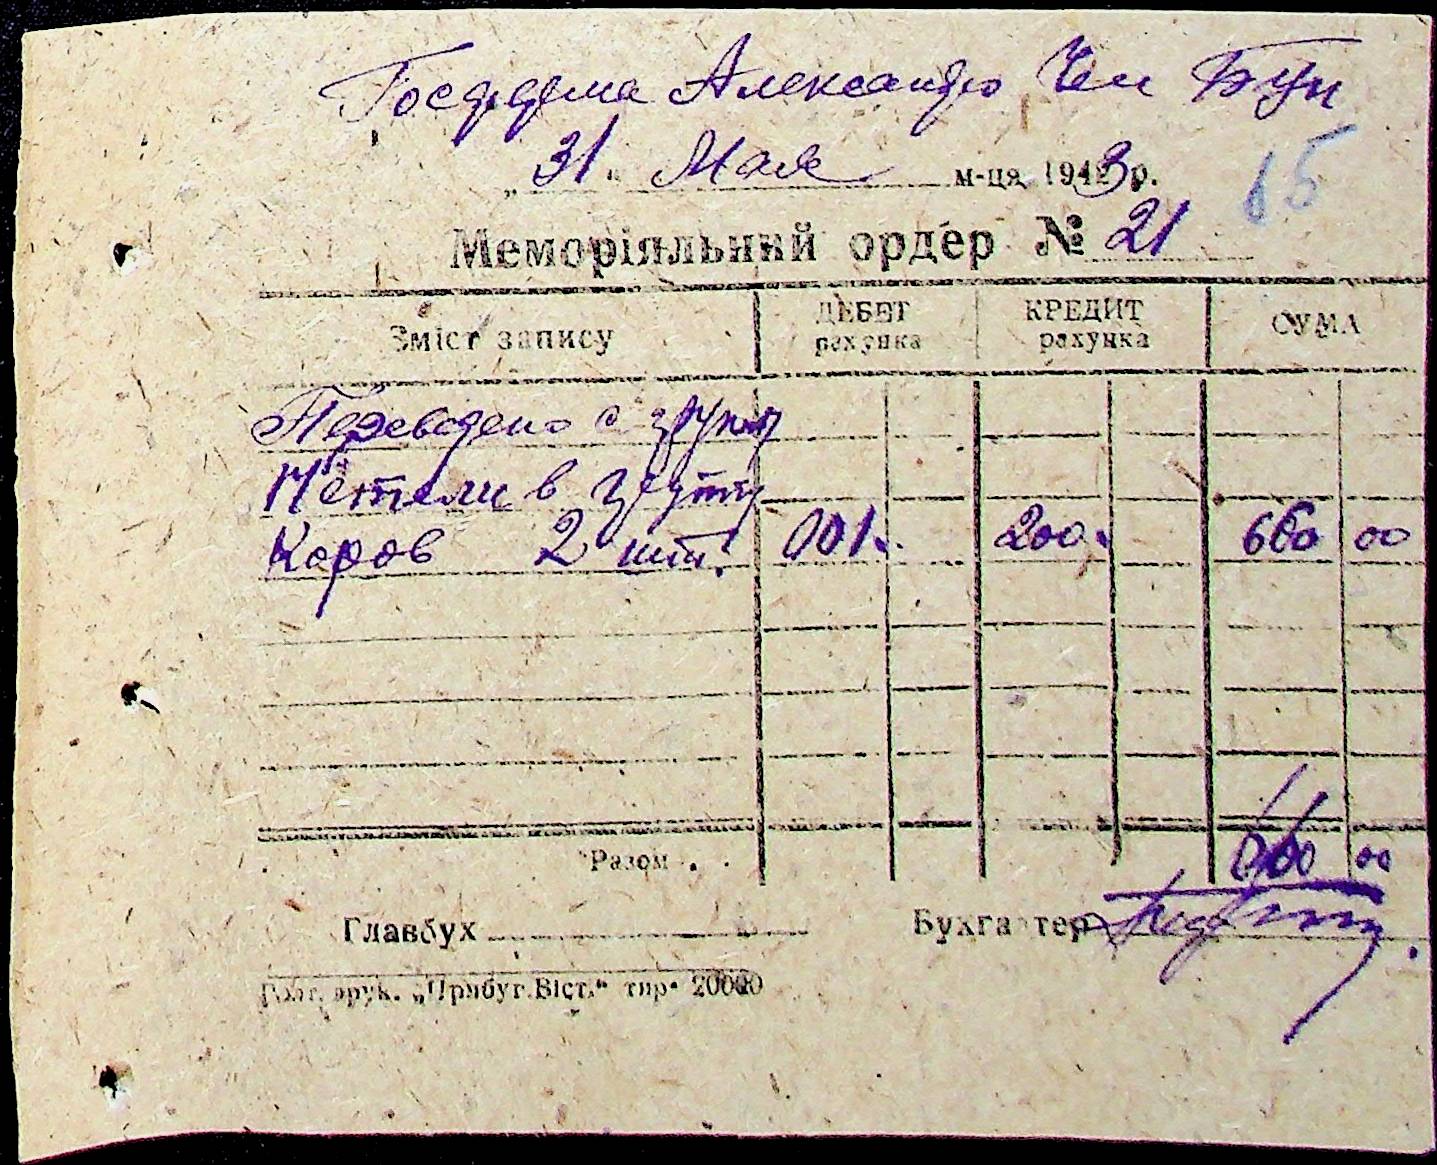 Александро
15
„31“ Мая м-ця 1943 р.
Меморіяльний ордер № 21
Зміст запису ДЕБЕТ рахунка КРЕДИТ рахунка СУМА
Переведено с групы
Нетели в группу
Коров 2 шт. 001. 200. 660 00
Разом . . 660 00
Главбух Бухгалтер
друк. „Прибуг.Віст.“ тир. 20000